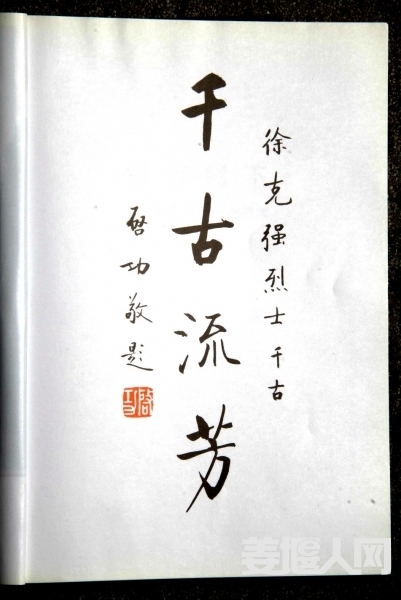 徐克强烈士千古
千古流芳
啓功敬题
啓功
姜堰人网